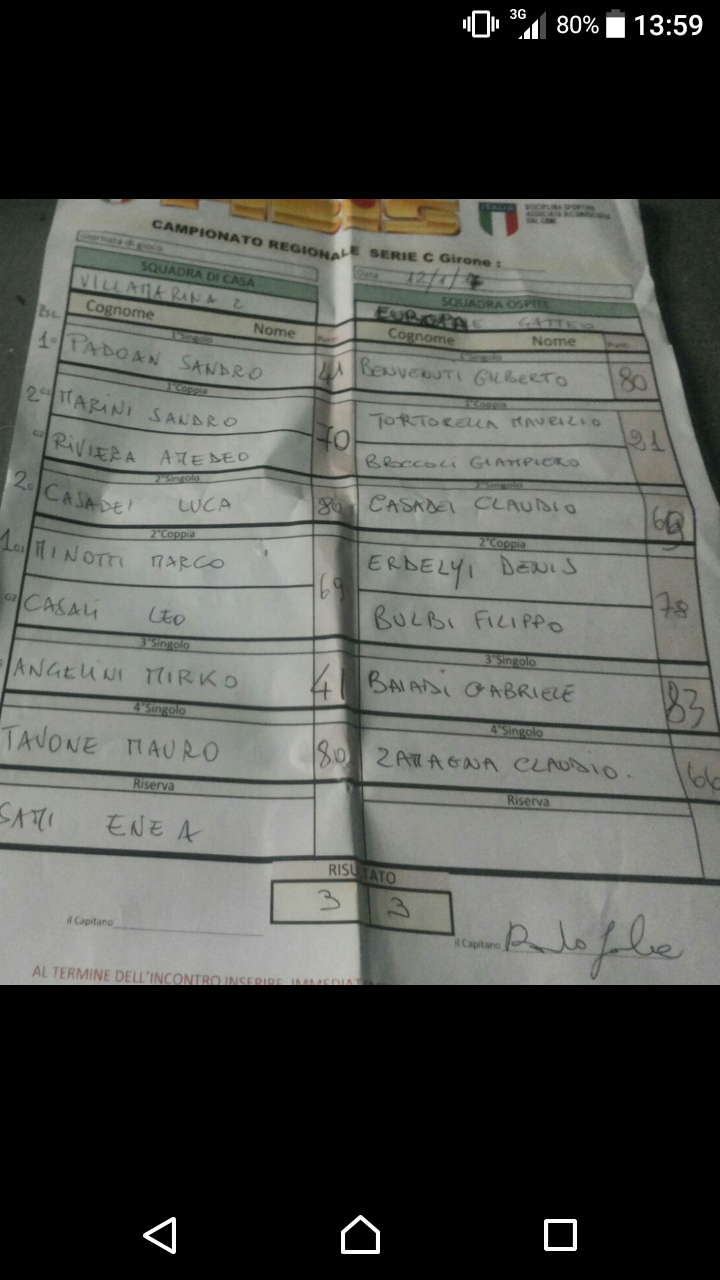 3G 80% 13:59
ITALIA
CAMPIONATO REGIONALE SERIE C Girone :
Giornata di gioco Data 12/1/7
SQUADRA DI CASA SQUADRA OSPITE
VILLAMARINA 2 GATTEO
Cognome Nome Punti Cognome Nome Punti
1°Singolo 1°Singolo
PADOAN SANDRO 41 BENVENUTI GILBERTO 80
1°Coppia 1°Coppia
MARINI SANDRO 70 TORTORELLA MAURIZIO 21
RIVIERA AMEDEO BROCCOLI GIAMPIERO
2°Singolo 2°Singolo
CASADEI LUCA 80 CASADEI CLAUDIO
2°Coppia 2°Coppia
MINOTTI MARCO 69 ERDELYI DENIS 78
CASALI LEO BULBI FILIPPO
3°Singolo 3°Singolo
ANGELINI MIRKO 41 BAIADI GABRIELE 83
4°Singolo 4°Singolo
TAVONE MAURO 80 ZAMAGNA CLAUDIO. 66
Riserva Riserva
SAMI ENEA
RISULTATO
3 3
il Capitano il Capitano
AL TERMINE DELL'INCONTRO INSERIRE